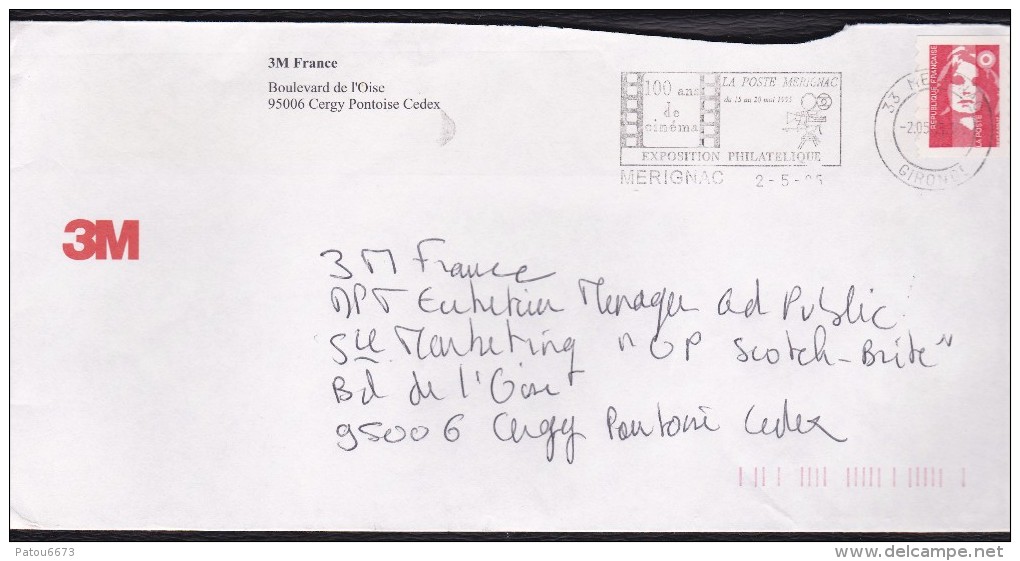 3M France
Boulevard de l'Oise
95006 Cergy Pontoise Cedex
100 ans
de
cinéma
LA POSTE MERIGNAC
EXPOSITION PHILATELIQUE
MERIGNAC 2-5-
33 ME
-2.05
GIRONDE
REPUBLIQUE FRANÇAISE
LA POSTE
3M
3M France
DPT Entretien Menager Gd Public
Sce Marketing "OP Scotch-Brite"
Bd de l'Oise
95006 Cergy Pontoise Cedex
Patou6673
www.delcampe.net